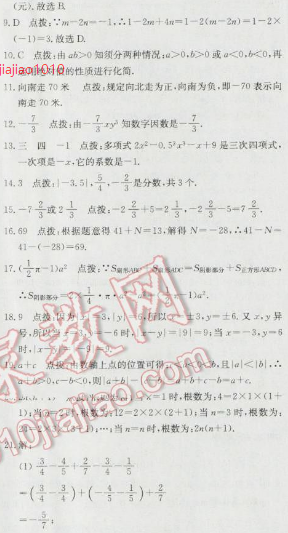 (元).故选 B.
9. D 点拨:∵m-2n=-1,∴1-2m+4n=1-2(m-2n)=1-2×
(-1)=3.故选 D.
10. C 点拨:由 ab>0 知须分两种情况:a>0,b>0 或 a<0,b<0,再
jiajiao1010
的性质进行化简.
11. 向南走 70 米 点拨:规定向北走为正,向南为负,即-70 表示向
南走 70 米.
12. -7/3 点拨:由-7/3xy² 知数字因数是-7/3.
13. 三 四 -1 点拨:多项式 2x²-0.5²x³-x+9 是三次四项式,
一次项是-x,它的系数是-1.
14. 3 点拨:|-3.5|,5/4,-2/3是分数,共 3 个.
15. -7 2/3或 2 1/3 点拨:-2 2/3+5=2 1/3,-2 2/3-5=-7 2/3.
16. 69 点拨:根据题意得 41+N=13,解得 N=-28,∴41-N=
41-(-28)=69.
17. (1/4π-1)a² 点拨:∵S扇形
=S阴影部分+S正方形ABCD,
∴S阴影部分
18. 9 点拨:因为|x|=3,|y|=6,所以
y=±6.又 x,y 异
号,所以当 x=3,y=-6 时,|x-y|=|9|=9;当 x=-3,y=6
时,|x-y|
=9.
19. a+c 点拨:由数轴上点的位置可得
且|a|<|b|,∴
a+b>0,c-b<0,则
=a+b+c-b=a+c.
=1 时,根数为:4=2×1×(1+
1);当 n=2 时,根数为:12=2×2×(2+1);当 n=3 时,根数为:
24=2×3×(3+1);…;当 n=n 时,根数为:2n(n+1).
21. 解:
(1) 3/4-4/5+2/7-3/4-1/5
=(3/4-3/4)+(-4/5-1/5)+2/7
=-5/7;